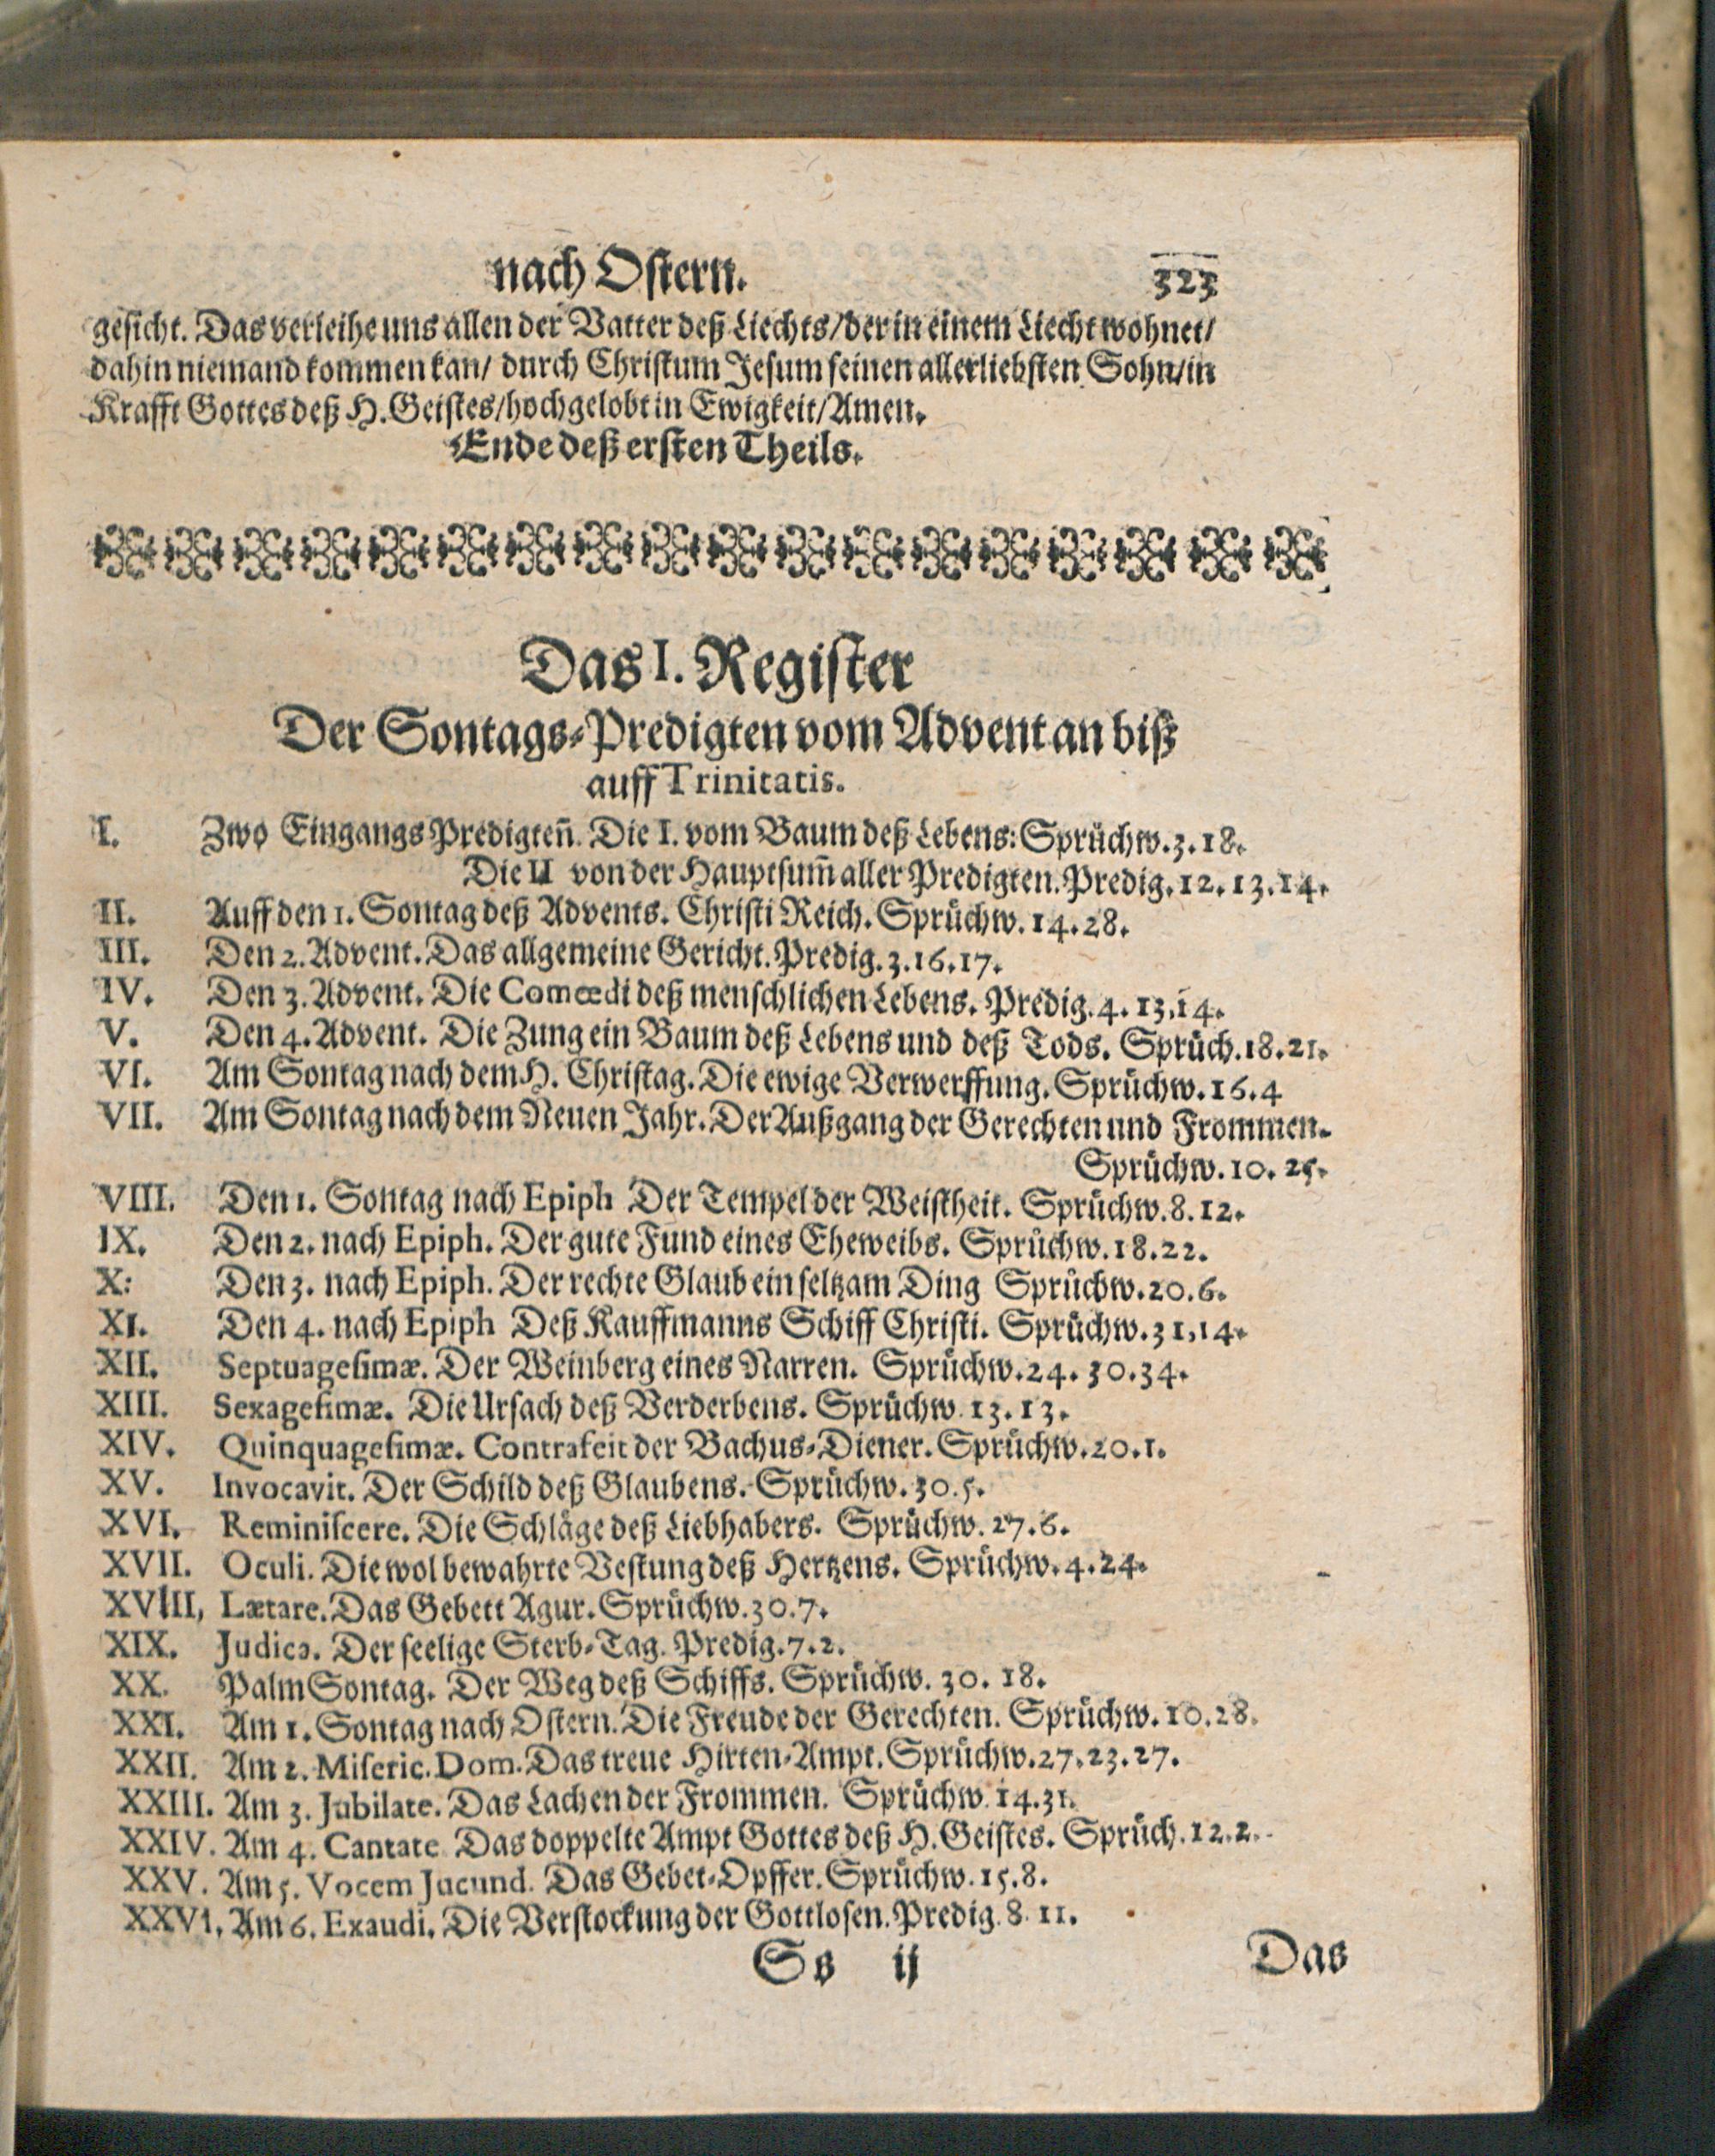 nach Ostern. 323
gesicht. Das verleihe uns allen der Vatter deß Liechts/ der in einem Liecht wohnet/
dahin niemand kommen kan/ durch Christum Jesum seinen allerliebsten Sohn/ in
Krafft Gottes deß H. Geistes/ hochgelobt in Ewigkeit/ Amen.
Ende deß ersten Theils.
Das I. Register
Der Sontags-Predigten vom Advent an biß
auff Trinitatis.
I. Zwo Eingangs Predigteñ. Die I. vom Baum deß Lebens: Sprüchw. 3. 18.
Die II von der Hauptsum̃ aller Predigten. Predig. 12. 13. 14.
II. Auff den 1. Sontag deß Advents. Christi Reich. Sprüchw. 14. 28.
III. Den 2. Advent. Das allgemeine Gericht. Predig. 3. 16. 17.
IV. Den 3. Advent. Die Comœdi deß menschlichen Lebens. Predig. 4. 13, 14.
V. Den 4. Advent. Die Zung ein Baum deß Lebens und deß Tods. Sprüch. 18. 21.
VI. Am Sontag nach dem H. Christag. Die ewige Verwerffung. Sprüchw. 16. 4
VII. Am Sontag nach dem Neuen Jahr. Der Außgang der Gerechten und Frommen.
Sprüchw. 10. 25.
VIII. Den 1. Sontag nach Epiph Der Tempel der Weißheit. Sprüchw. 8. 12.
IX. Den 2. nach Epiph. Der gute Fund eines Eheweibs. Sprüchw. 18. 22.
X: Den 3. nach Epiph. Der rechte Glaub ein seltzam Ding Sprüchw. 20. 6.
XI. Den 4. nach Epiph Deß Kauffmanns Schiff Christi. Sprüchw. 31, 14.
XII. Septuagesimæ. Der Weinberg eines Narren. Sprüchw. 24. 30. 34.
XIII. Sexagesimæ. Die Ursach deß Verderbens. Sprüchw. 13. 13.
XIV. Quinquagesimæ. Contrafeit der Bachus-Diener. Sprüchw. 20. 1.
XV. Invocavit. Der Schild deß Glaubens. Sprüchw. 30. 5.
XVI. Reminiscere. Die Schläge deß Liebhabers. Sprüchw. 27. 6.
XVII. Oculi. Die wol bewahrte Vestung deß Hertzens. Sprüchw. 4. 24.
XVIII, Lætare. Das Gebett Agur. Sprüchw. 30. 7.
XIX. Judica. Der seelige Sterb-Tag. Predig. 7. 2.
XX. Palm Sontag. Der Weg deß Schiffs. Sprüchw. 30. 18.
XXI. Am 1. Sontag nach Ostern. Die Freude der Gerechten. Sprüchw. 10. 28.
XXII. Am 2. Miseric. Dom. Das treue Hirten-Ampt. Sprüchw. 27. 23. 27.
XXIII. Am 3. Jubilate. Das Lachen der Frommen. Sprüchw. 14. 31.
XXIV. Am 4. Cantate Das doppelte Ampt Gottes deß H. Geistes. Sprüch. 12. 2.
XXV. Am 5. Vocem Jucund. Das Gebet-Opffer. Sprüchw. 15. 8.
XXVI, Am 6. Exaudi, Die Verstockung der Gottlosen. Predig. 8. 11.
Ss ij Das